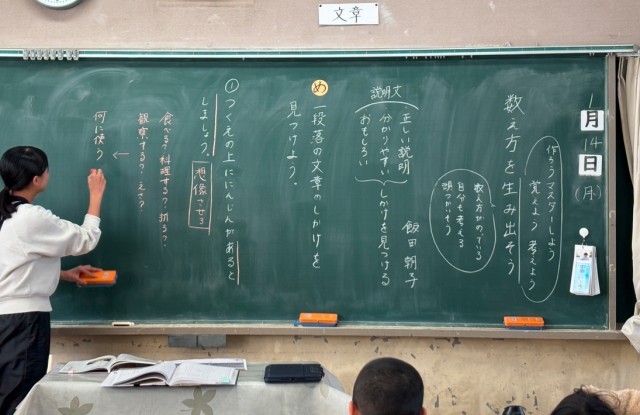 文章
1月14日(月)
作ろう マスターしよう
覚えよう 考えよう
数え方を生み出そう
数え方がのっている
自分も考える
飯田 朝子
説明文
正しい説明
分かりやすい
おもしろい
しかけを見つける
め 一段落の文章のしかけを
見つけよう。
① つくえの上ににんじんがあると
しましょう。
想像させる
食べる?料理する?切る?
観察する?えさ?
←
何に使う